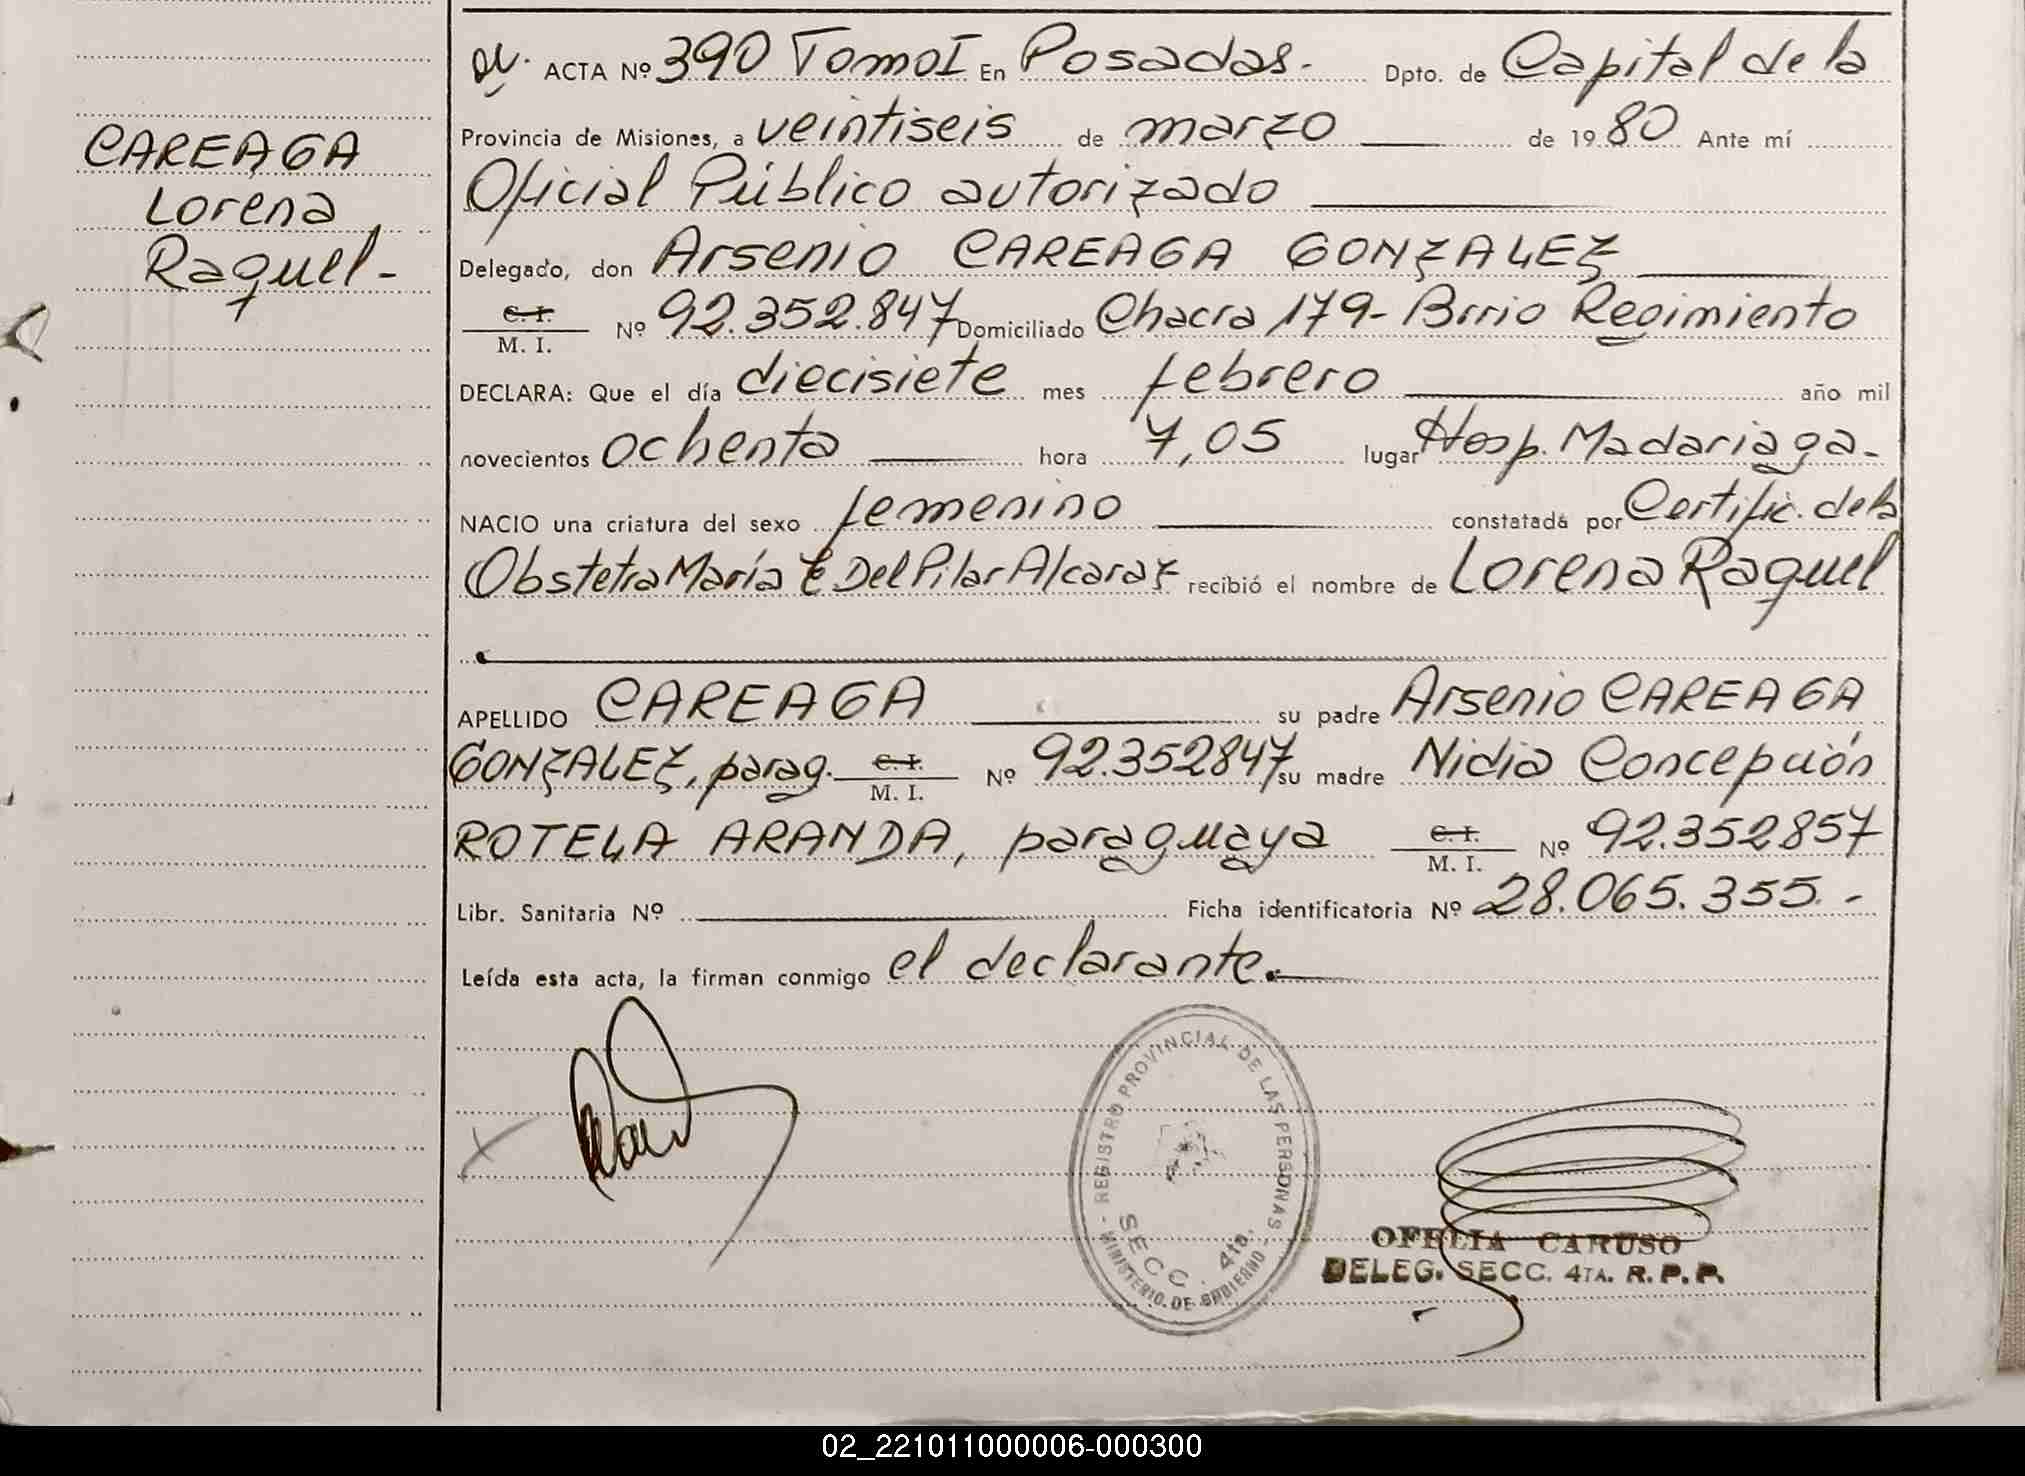 CAREAGA
Lorena
Raquel-
ACTA Nº 390 Tomo I En Posadas.- Dpto. de Capital de la
Provincia de Misiones, a veintiseis de marzo de 1980 Ante mí
Oficial Público autorizado
Delegado, don Arsenio CAREAGA GONZALEZ
C. I. M. I. Nº 92.352.847 Domiciliado Chacra 179- Brrio Regimiento
DECLARA: Que el día diecisiete mes febrero año mil
novecientos ochenta hora 7,05 lugar Hosp. Madariaga.-
NACIO una criatura del sexo femenino constatada por Certific. de la
Obstetra María E Del Pilar Alcaraz recibió el nombre de Lorena Raquel
APELLIDO CAREAGA su padre Arsenio CAREAGA
GONZALEZ, parag. C. I. M. I. Nº 92.352847 su madre Nidia Concepción
ROTELA ARANDA, paraguaya C. I. M. I. Nº 92.352857
Libr. Sanitaria Nº Ficha identificatoria Nº 28.065.355.-
Leída esta acta, la firman conmigo el declarante.
REGISTRO PROVINCIAL DE LAS PERSONAS
SECC. 4ta.
MINISTERIO DE GOBIERNO
OFELIA CARUSO
DELEG. SECC. 4TA. R. P. P.
02_221011000006-000300